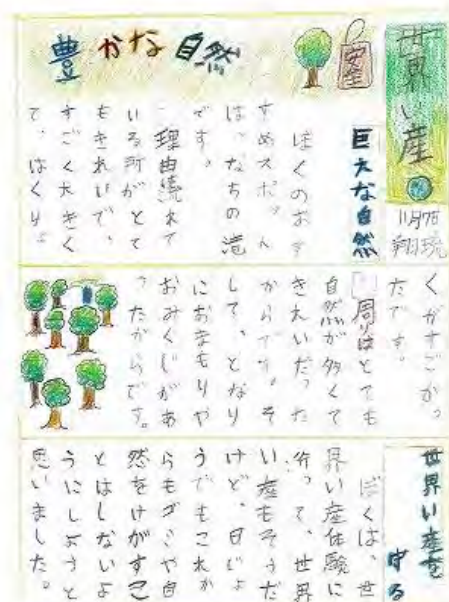 世界い産
11月7日
翔琉
豊かな自然
安全
巨大な自然
ぼくのおす
すめスポット
は、なちの滝
です。
理由は、流れて
いる所がとて
もきれいで、
すごく大きく
て、はくりょ
くがすごかっ
たです。
周りはとても
自然が多くて
きれいだった
からです。そ
して、となり
におまもりや
おみくじがあ
ったからです。
世界い産を
守る
ぼくは、世
界い産体験に
行って、世界
い産もそうだ
けど、日じょ
うでもこれか
らもゴミや自
然をけがすこ
とはしないよ
うにしようと
思いました。